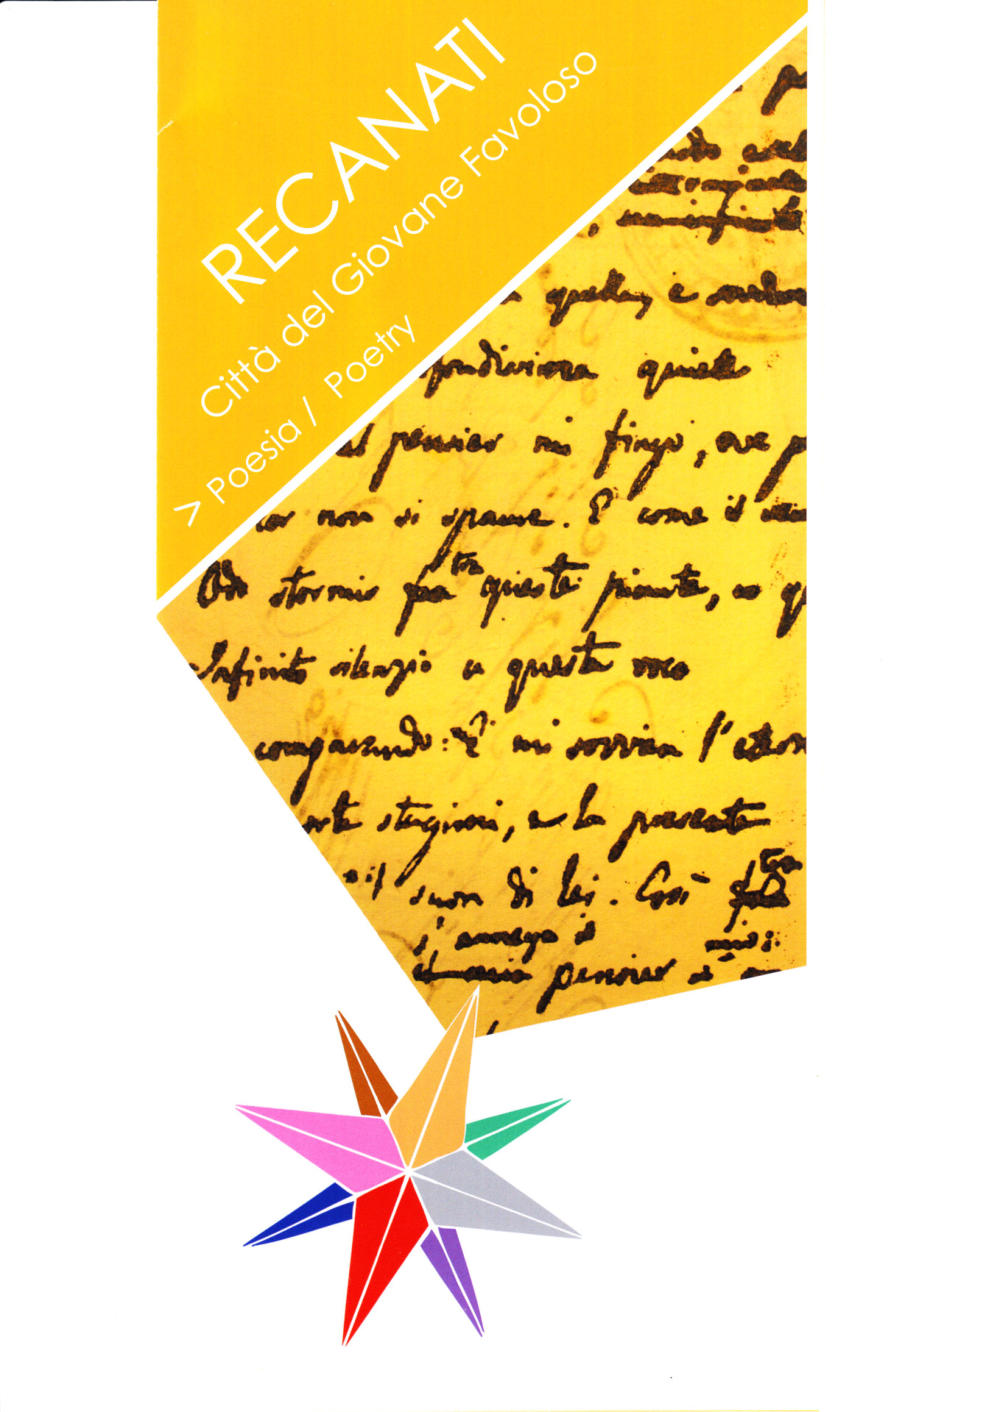 RECANATI
Città del Giovane Favoloso
> Poesia / Poetry
quella, e
quiete
pensier mi fingo, ove p
cor non si spaura. E come il
Odo stormir fra tra queste piante, io q
Infinito silenzio a questa voce
comparando: E mi sovvien l'eter
morte stagioni, e la presente
suon di lei. Così fra tra
s'annega il mio:
il mio pensier